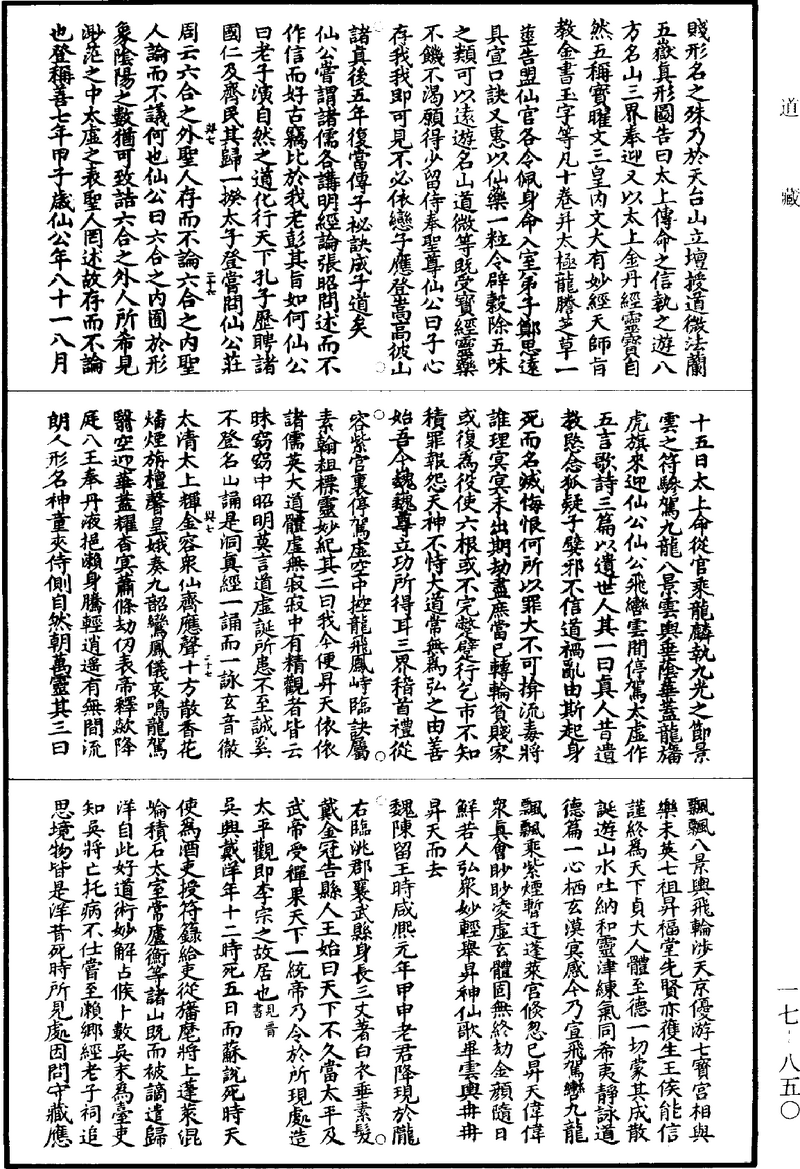 道藏
賤形名之殊乃於天台山立壇授道微法蘭
五嶽真形圖告曰太上傳命之信執之遊八
方名山三界奉迎又以太上金丹經靈寶自
然五稱寶曜文三皇內文大有妙經天師旨
教金書玉字等凡十卷并太極龍騰芝草一
莖告盟仙官各令佩身命入室弟子鄭思遠
具宣口訣又惠以仙藥一粒令辟穀除五味
之類可以遠遊名山道微等既受寶經靈藥
不饑不渴願得少留侍奉聖尊仙公曰子心
存我我即可見不必依戀子應登嵩高彼山
諸真後五年復當傳子秘訣成子道矣
仙公嘗謂諸儒各講明經論張昭問述而不
作信而好古竊比於我老彭其旨如何仙公
曰老子演自然之道化行天下孔子歷聘諸
國仁及齊民其歸一揆太子登嘗問仙公莊
周云六合之外聖人存而不論六合之內聖
人論而不議何也仙公曰六合之內囿於形
象陰陽之數猶可致詰六合之外人所希見
渺茫之中太虛之表聖人罔述故存而不論
也登稱善七年甲子歲仙公年八十一八月
十五日太上命從官乘龍麟執九光之節景
雲之符驂駕九龍八景雲輿垂蔭華蓋龍旛
虎旗來迎仙公仙公飛轡雲間停駕太虛作
五言歌詩三篇以遺世人其一曰真人昔遺
教愍念狐疑子嬖邪不信道禍亂由斯起身
死而名滅悔恨何所以罪大不可揜流毒將
誰理冥冥未出期劫盡庶當已轉輪貧賤家
或復為役使六根或不完躄躄行乞市不知
積罪報怨天神不恃大道常無為弘之由善
始吾今巍巍尊立功所得耳三界稽首禮從
容紫宮裏停駕虛空中控龍飛鳳峙臨訣屬
素翰粗標靈妙紀其二曰我今便昇天依依
諸儒英大道體虛無寂寂中有精觀者皆云
昧窈窈中昭明莫言道虛誕所患不至誠奚
不登名山誦是洞真經一誦而一詠玄音徹
太清太上輝金容眾仙齊應聲十方散香花
燔煙旃檀馨皇娥奏九韶鸞鳳儀哀鳴龍駕
翳空迎華蓋耀杳冥蕭條劫仞表帝釋歘降
庭八王奉丹液挹漱身騰輕逍遙有無間流
朗人形名神童夾侍側自然朝萬靈其三曰
飄飄八景輿飛輪涉天京優游七寶宮相與
樂未英七祖昇福堂先賢亦獲生王侯能信
謹終為天下貞大人體至德一切蒙其成散
誕遊山水吐納和靈津練氣同希夷靜詠道
德篇一心栖玄漠冥感今乃宣飛駕轡九龍
飄飄乘紫煙暫迂蓬萊宮倏忽已昇天偉偉
眾真會眇眇凌虛玄體固無終劫金顏隨日
鮮若人弘眾妙輕舉昇神仙歌畢雲輿冉冉
昇天而去
魏陳留王時咸熙元年甲申老君降現於隴
右臨洮郡襄武縣身長三丈著白衣垂素髮
戴金冠告縣人王始曰天下不久當太平及
武帝受禪果天下一統帝乃令於所現處造
太平觀即李宗之故居也見晉書
吳興戴洋年十二時死五日而蘇說死時天
使為酒吏授符籙給吏從旛麾將上蓬萊混
崘積石太室常廬衡等諸山既而被謫遣歸
洋自此好道術妙解占候卜數吳末為臺吏
知吳將亡托病不仕嘗至瀨鄉經老子祠追
思境物皆是洋昔死時所見處因問守藏應
一七-八五〇